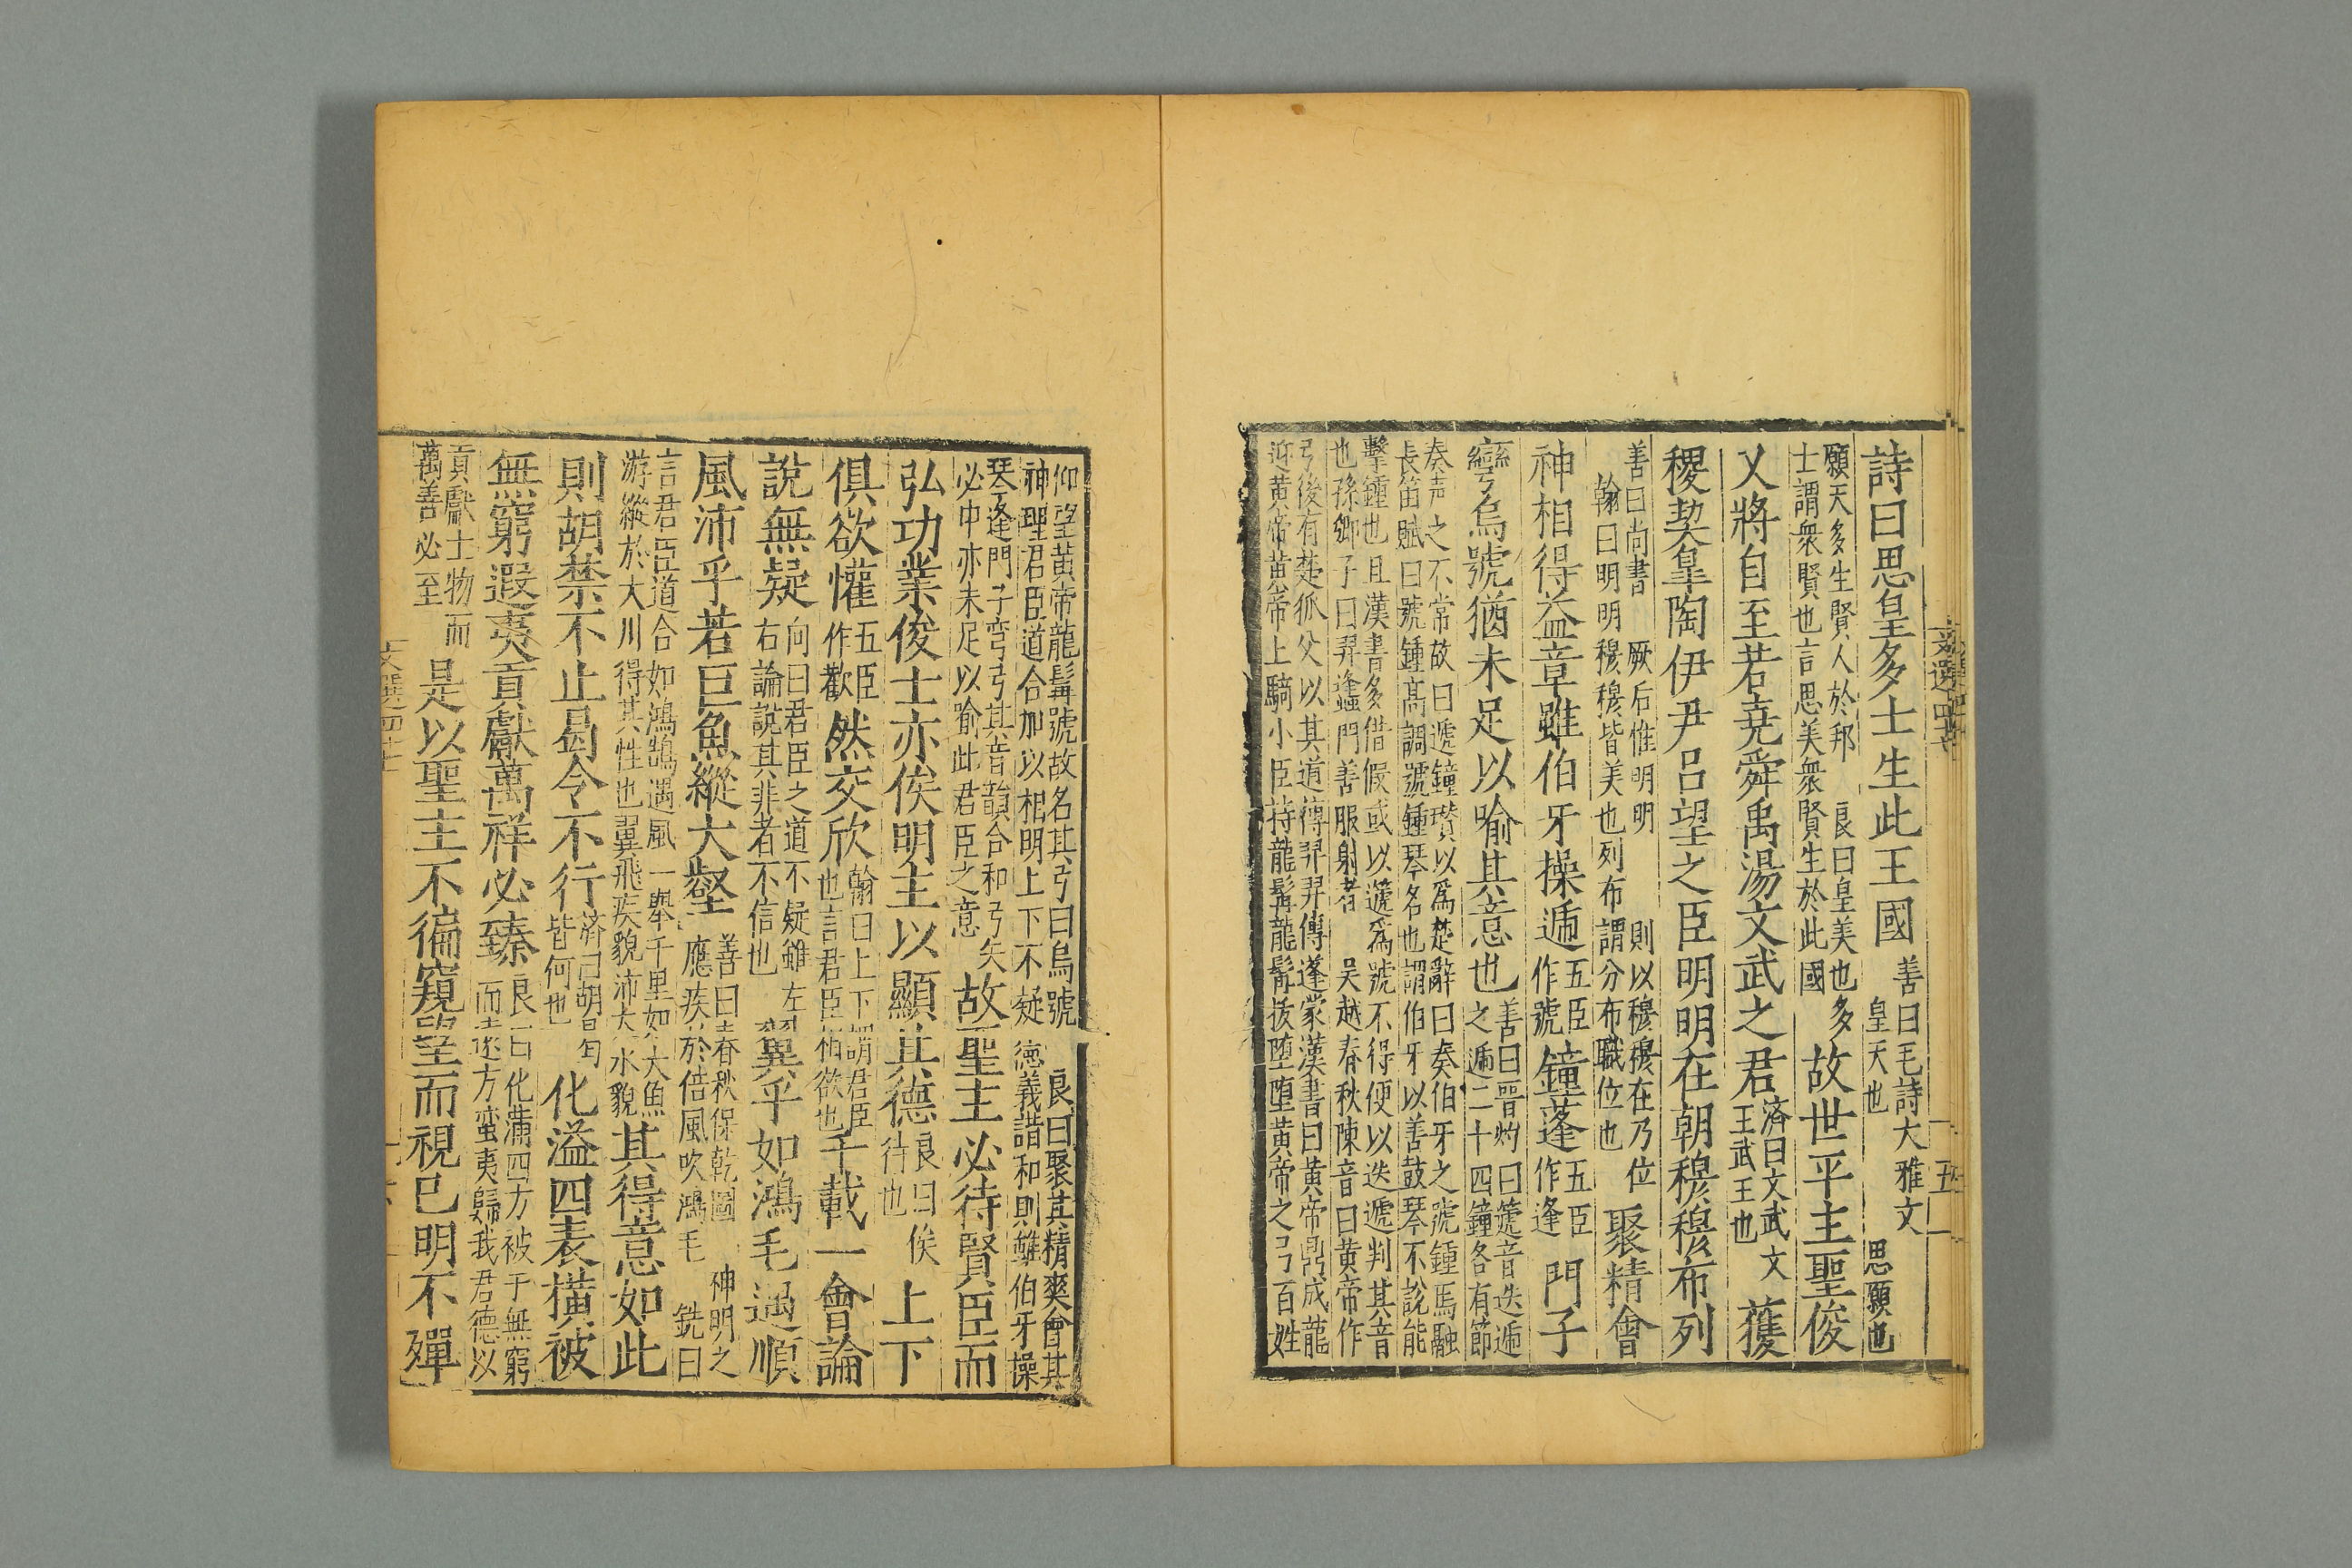 詩曰思皇多士生此王國 善曰毛詩大雅文 思願也
皇天也
願天多生賢人於邦 良曰皇美也多
士謂衆賢也言思美衆賢生於此國 故世平主聖俊
乂將自至若堯舜禹湯文武之君 濟曰文武文
王武王也 獲
稷契皐陶伊尹呂望之臣明明在朝穆穆布列
善曰尚書 厥后惟明明 則以穆穆在乃位
翰曰明明穆穆皆美也列布謂分布職位也 聚精會
神相得益章雖伯牙操遞 五臣
作號 鐘蓬 五臣
作逢 門子
彎烏號猶未足以喻其意也 善曰晋灼曰遞音迭遞
之遞二十四鐘各有節
奏声之不常故曰遞鐘瓚以爲楚辭曰奏伯牙之號鍾馬融
長笛賦曰號鍾髙調號鍾琴名也謂伯牙以善鼓琴不說能
擊鍾也且漢書多借假或以遞爲號不得便以迭遞判其音
也孫卿子曰羿逢門善服射者 吴越春秋陳音曰黄帝作
弓後有楚狐父以其道傳羿羿傳逢蒙漢書曰黄帝鼎成龍
迎黄帝黄帝上騎小臣持龍髯龍髯拔堕堕黄帝之弓百姓
仰望黄帝龍髯號故名其弓曰烏號 良曰聚其精爽會其
神理君臣道合加以相明上下不疑 德義諧和則雖伯牙操
琴逢門子弯弓其音韻合和弓矢
必中亦未足以喻此君臣之意 故聖主必待賢臣而
弘功業俊士亦俟明主以顯其德 良曰俟
待也 上下
俱欲懽 五臣
作歡 然交欣 翰曰上下謂君臣
也言君臣相欲也 千載一會論
說無疑 向曰君臣之道不疑雖左
右論說其非者不信也 翼乎如鴻毛遇順
風沛乎若巨魚縱大壑 善曰春秋保乾圖 神明之
應疾於倍風吹鴻毛 銑曰
言君臣道合如鴻鵠遇風一舉千里如大魚
游縱於大川得其性也翼飛疾貌沛大水貌 其得意如此
則胡禁不止曷令不行 濟曰胡曷
皆何也 化溢四表橫被
無窮遐夷貢獻萬祥必臻 良曰化溢四方被于無窮
而遠方蛮夷歸我君德以
貢獻士物而
萬善必至 是以聖主不徧窺望而視已明不殫